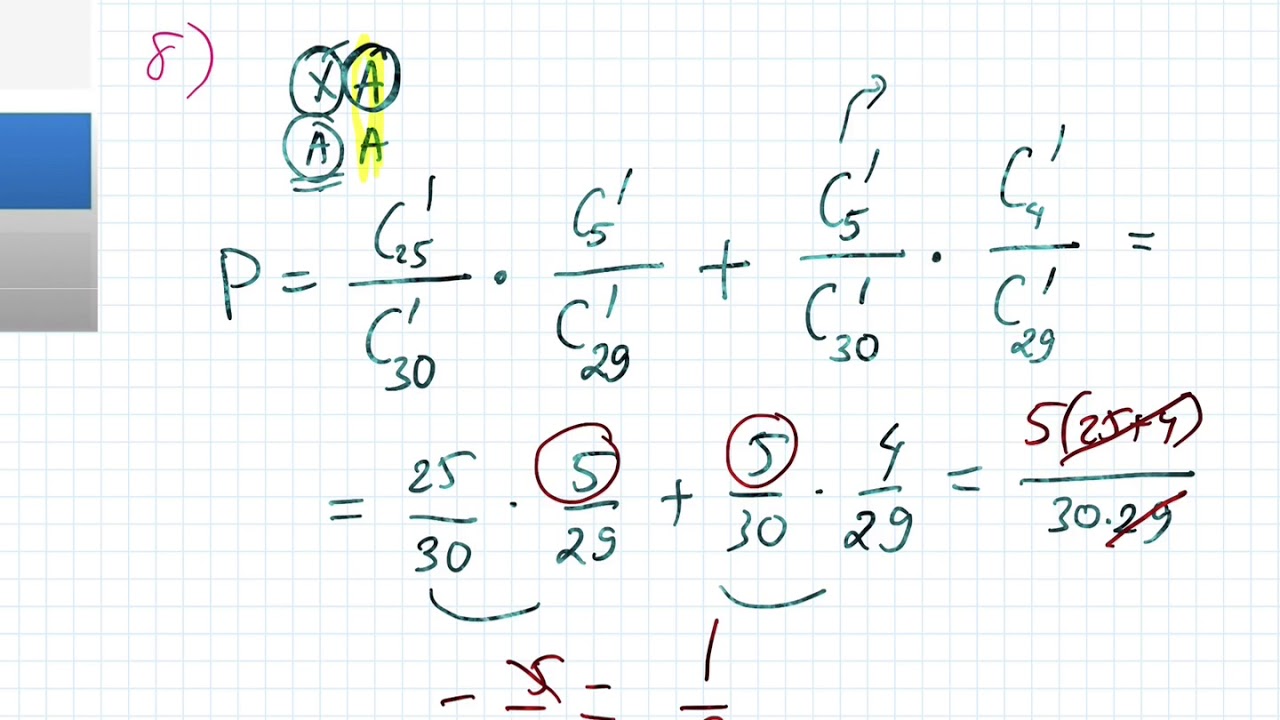 8)
X A
A A
P = C₂₅¹/C₃₀¹ · C₅¹/C₂₉¹ + C₅¹/C₃₀¹ · C₄¹/C₂₉¹ =
= 25/30 · 5/29 + 5/30 · 4/29 = 5(25+4)/30·29
- 5 = 1